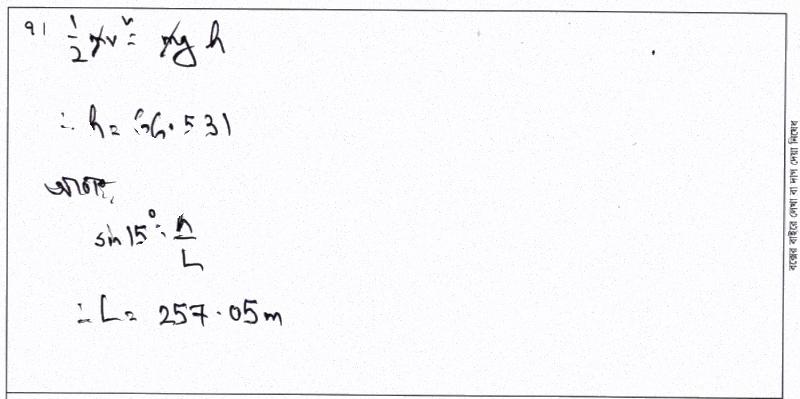 ৭। ½mv² = mgh
∴ h = 66.531
আবার,
sin 15° = h/L
∴ L = 257.05m
বক্সের বাইরে লেখা বা দাগ দেয়া নিষেধ